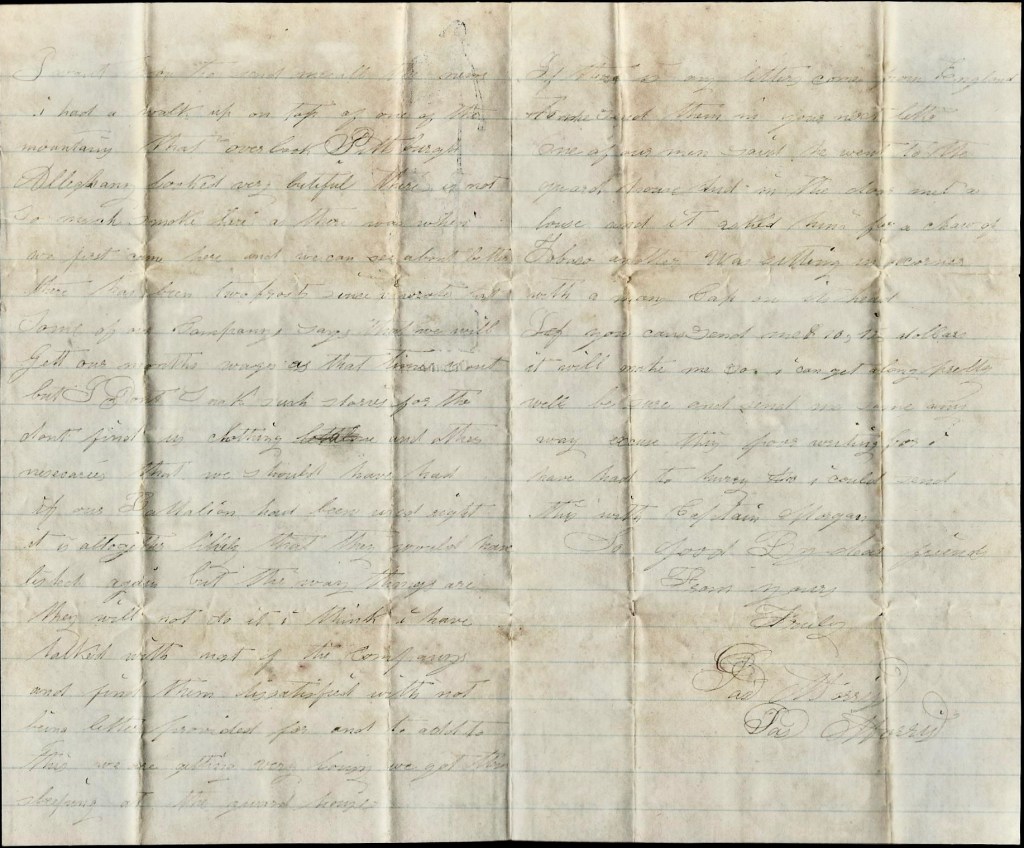 i had a walk up on top of one of the
mountains that over look Pittburgh
Allegheny looked very butiful there is not
so much smoke here a
we first come here and we can see about
there has been two frosts since i wrote
Some of our Company says that we will
Gett our months wages as that
but I Dont such stories for the
dont find us clothing and other
nesecaries that we should have had
if our Battalion had been used right
it is alltogether likely that they would have
listed again but the way things are
they will not do it i think i have
talked with of the Company
and find them dissatisfied with not
being better provided for and to add to
this we are getting very we got
sleeping at the guard house
If there is any letters come from England
send them in your next letter
one of our men said he went to the
guard house and in the door met a
louse and it asked him for a chaw of
Tobaco another Was sitting in corner
with a Cap on its head
If you can send me dollars
it will make me so i can get along pretty
well be sure and send me some
way excuse this poor writing for i
have had to hurry so i could send
this with Captain Morgan
So Good By dear friend
From yours
Truly
Jas Morris
Jas Morris